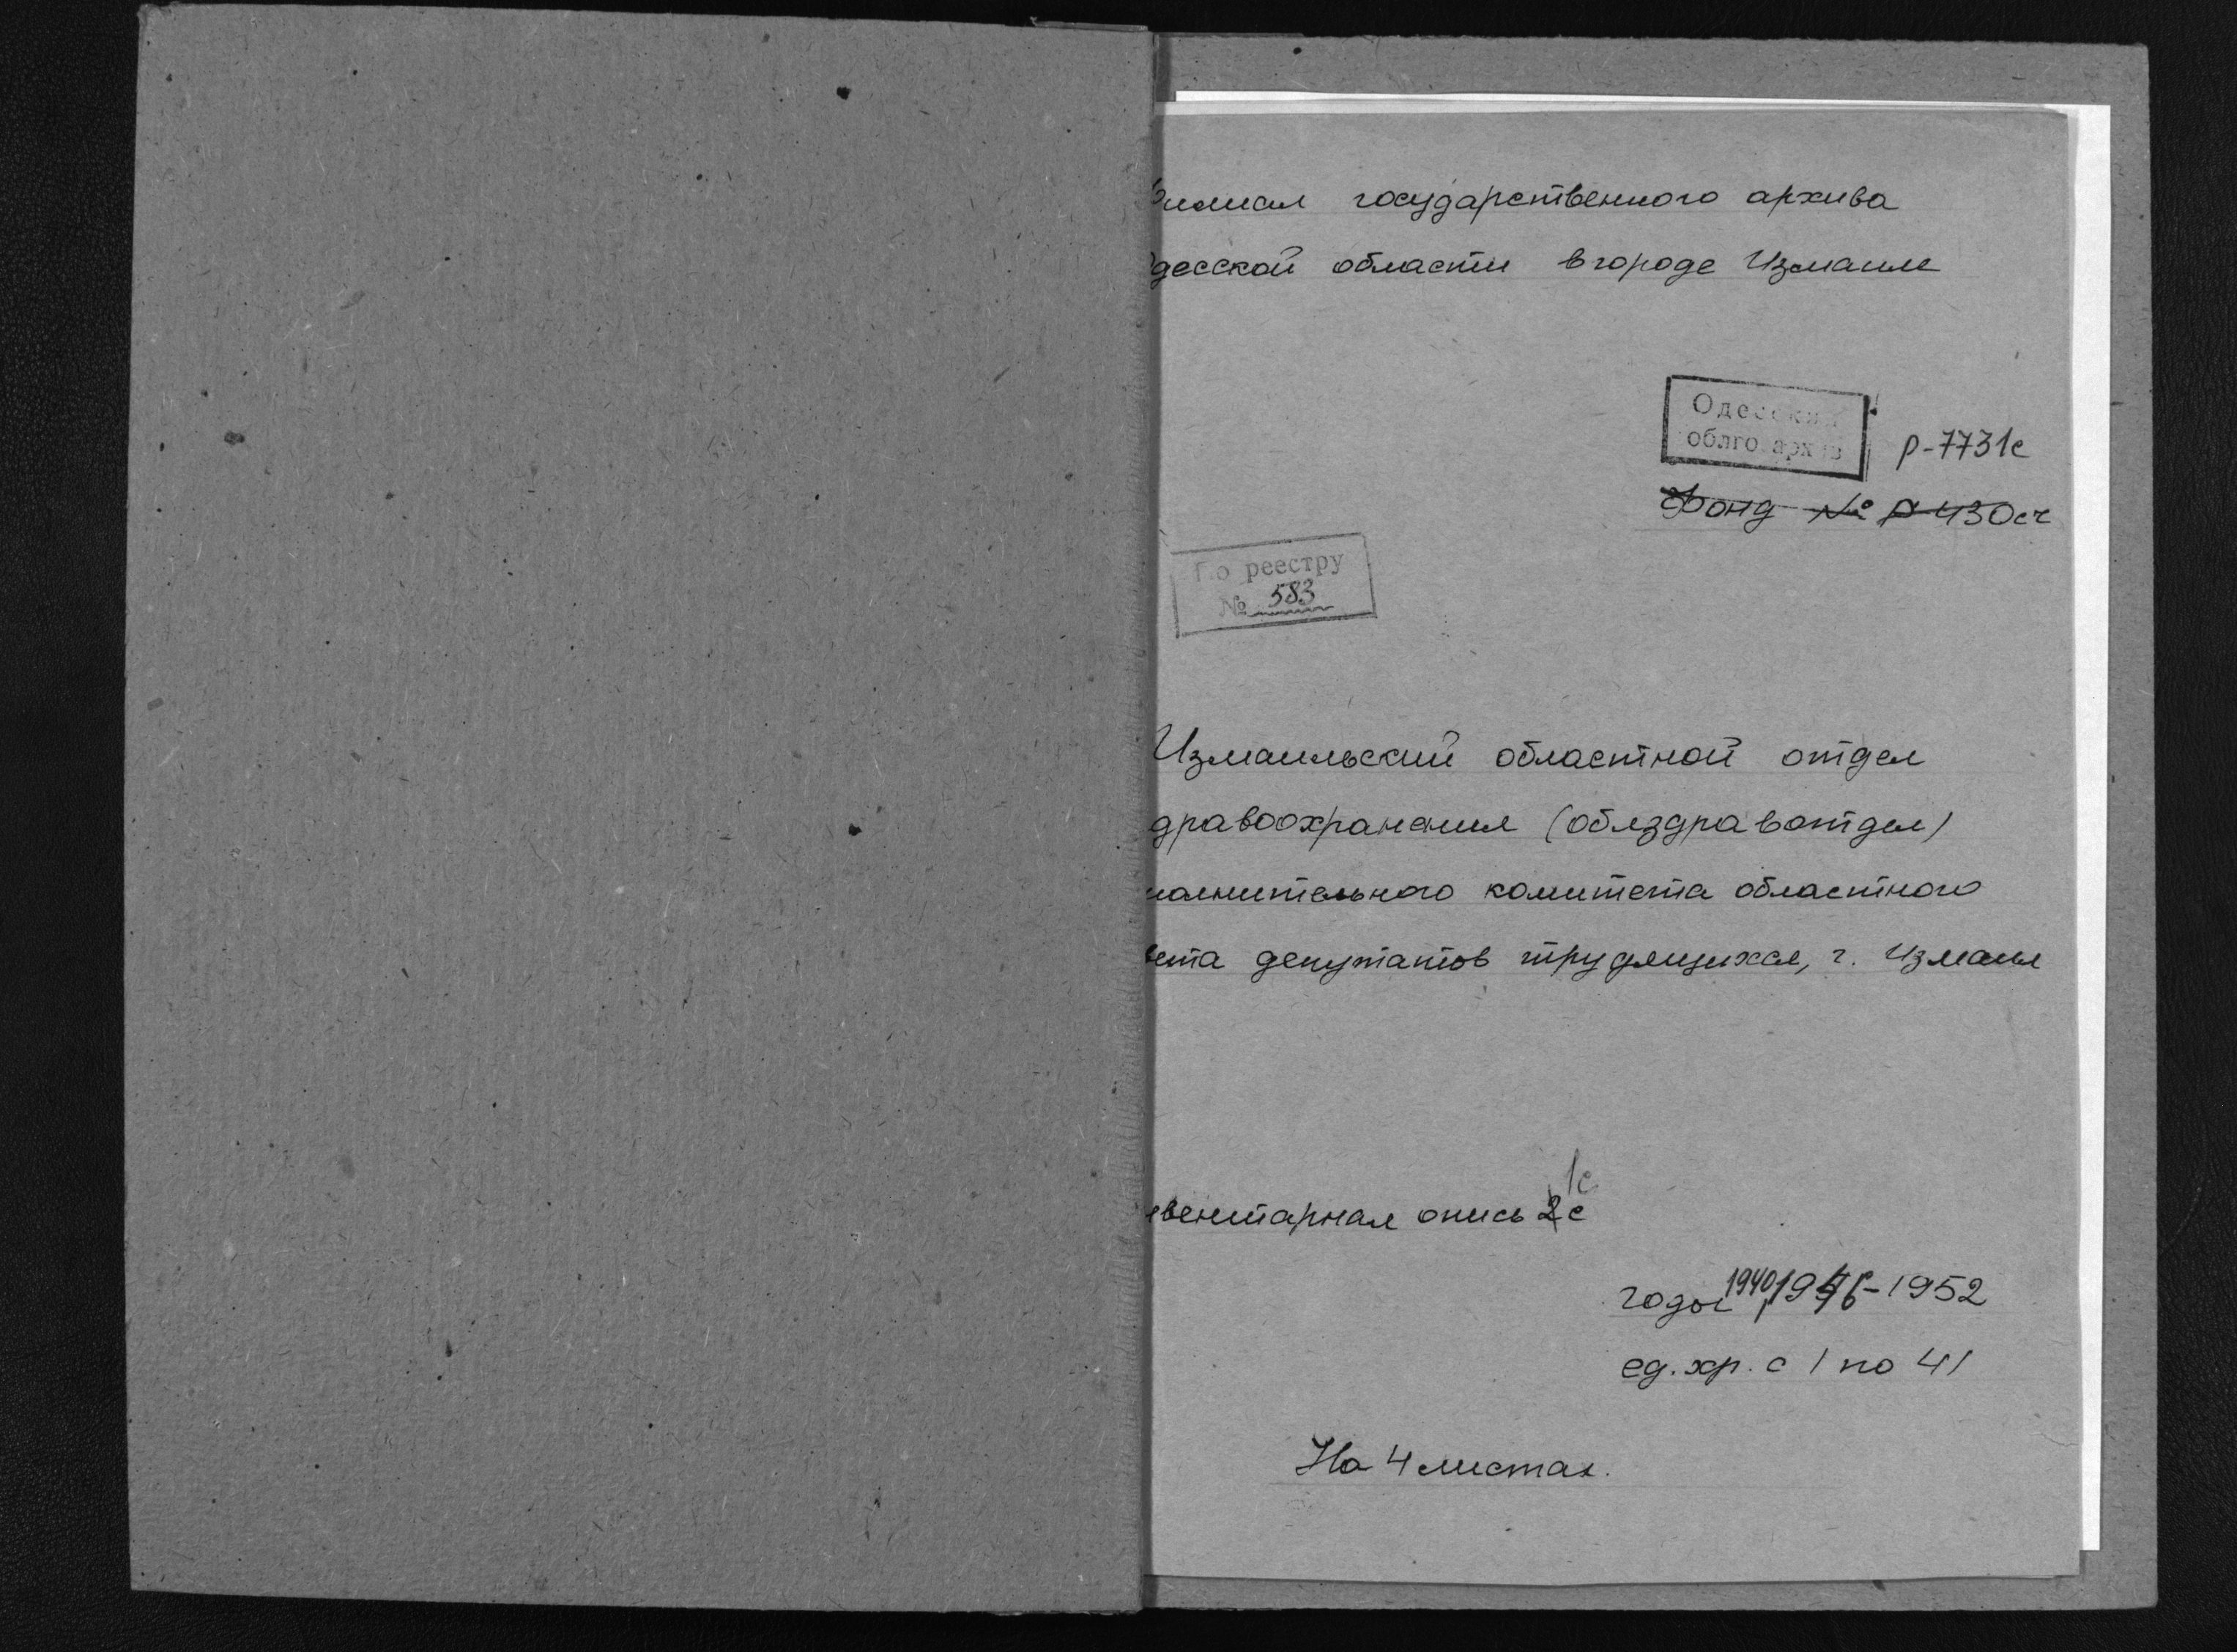 Филиал государственного архива
Одесской области в городе Измаиле
Одесский
облгосархив
Р-7731с
Фонд № Р-430сч
По реестру
№ 583
Измаильский областной отдел
дравоохранения (облздравотдел)
полнительного комитета областного
вета депутатов трудящихся, г. Измаил
1с
нвентарная опись 2с
годы 1940, 1946-1952
ед. хр. с 1 по 41
На 4 листах.